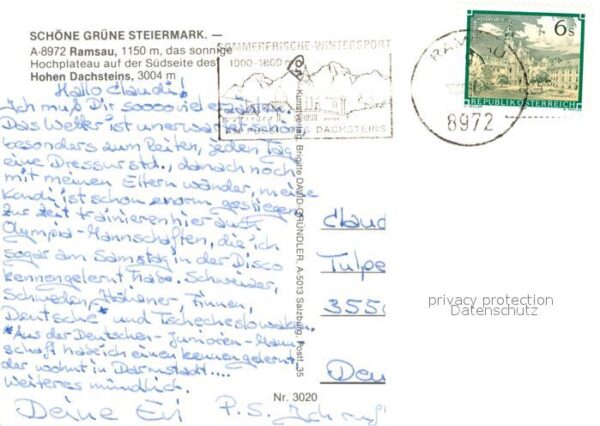 SCHÖNE GRÜNE STEIERMARK. —
A-8972 Ramsau, 1150 m, das sonnige
Hochplateau auf der Südseite des
Hohen Dachsteins, 3004 m
SOMMERFRISCHE-WINTERSPORT
1000-1800 m
AM FUSSE DES DACHSTEINS
RAMSAU
8972
6 S
REPUBLIK ÖSTERREICH
Hallo Claudi!
Ich muß Dir sooooviel erzählen.
Das Wetter ist unerwartet schön
besonders zum Reiten, jeden Tag
eine Dressurstd., danach noch
mit meinen Eltern wandern, meine
Kondi ist schon enorm gestiegen
Zur Zeit trainieren hier auch
Olympia-Mannschaften, die ich
sogar am Samstag in der Disco
kennengelernt habe. Schweizer,
Schweden, Italiener, Finnen,
Deutsche* und Tschechoslowaken.
*Aus der Deutschen-Junioren-Mann
schaft habe ich einen kennengelernt
der wohnt in Darmstadt....
Weiteres mündlich.
Deine Evi P.S. Ich ruf
Kunstverlag Brigitte DAVID-GRÜNDLER, A-5013 Salzburg, Postf. 35
Claud
Tulpe
355
Deu
privacy protection
Datenschutz
Nr. 3020